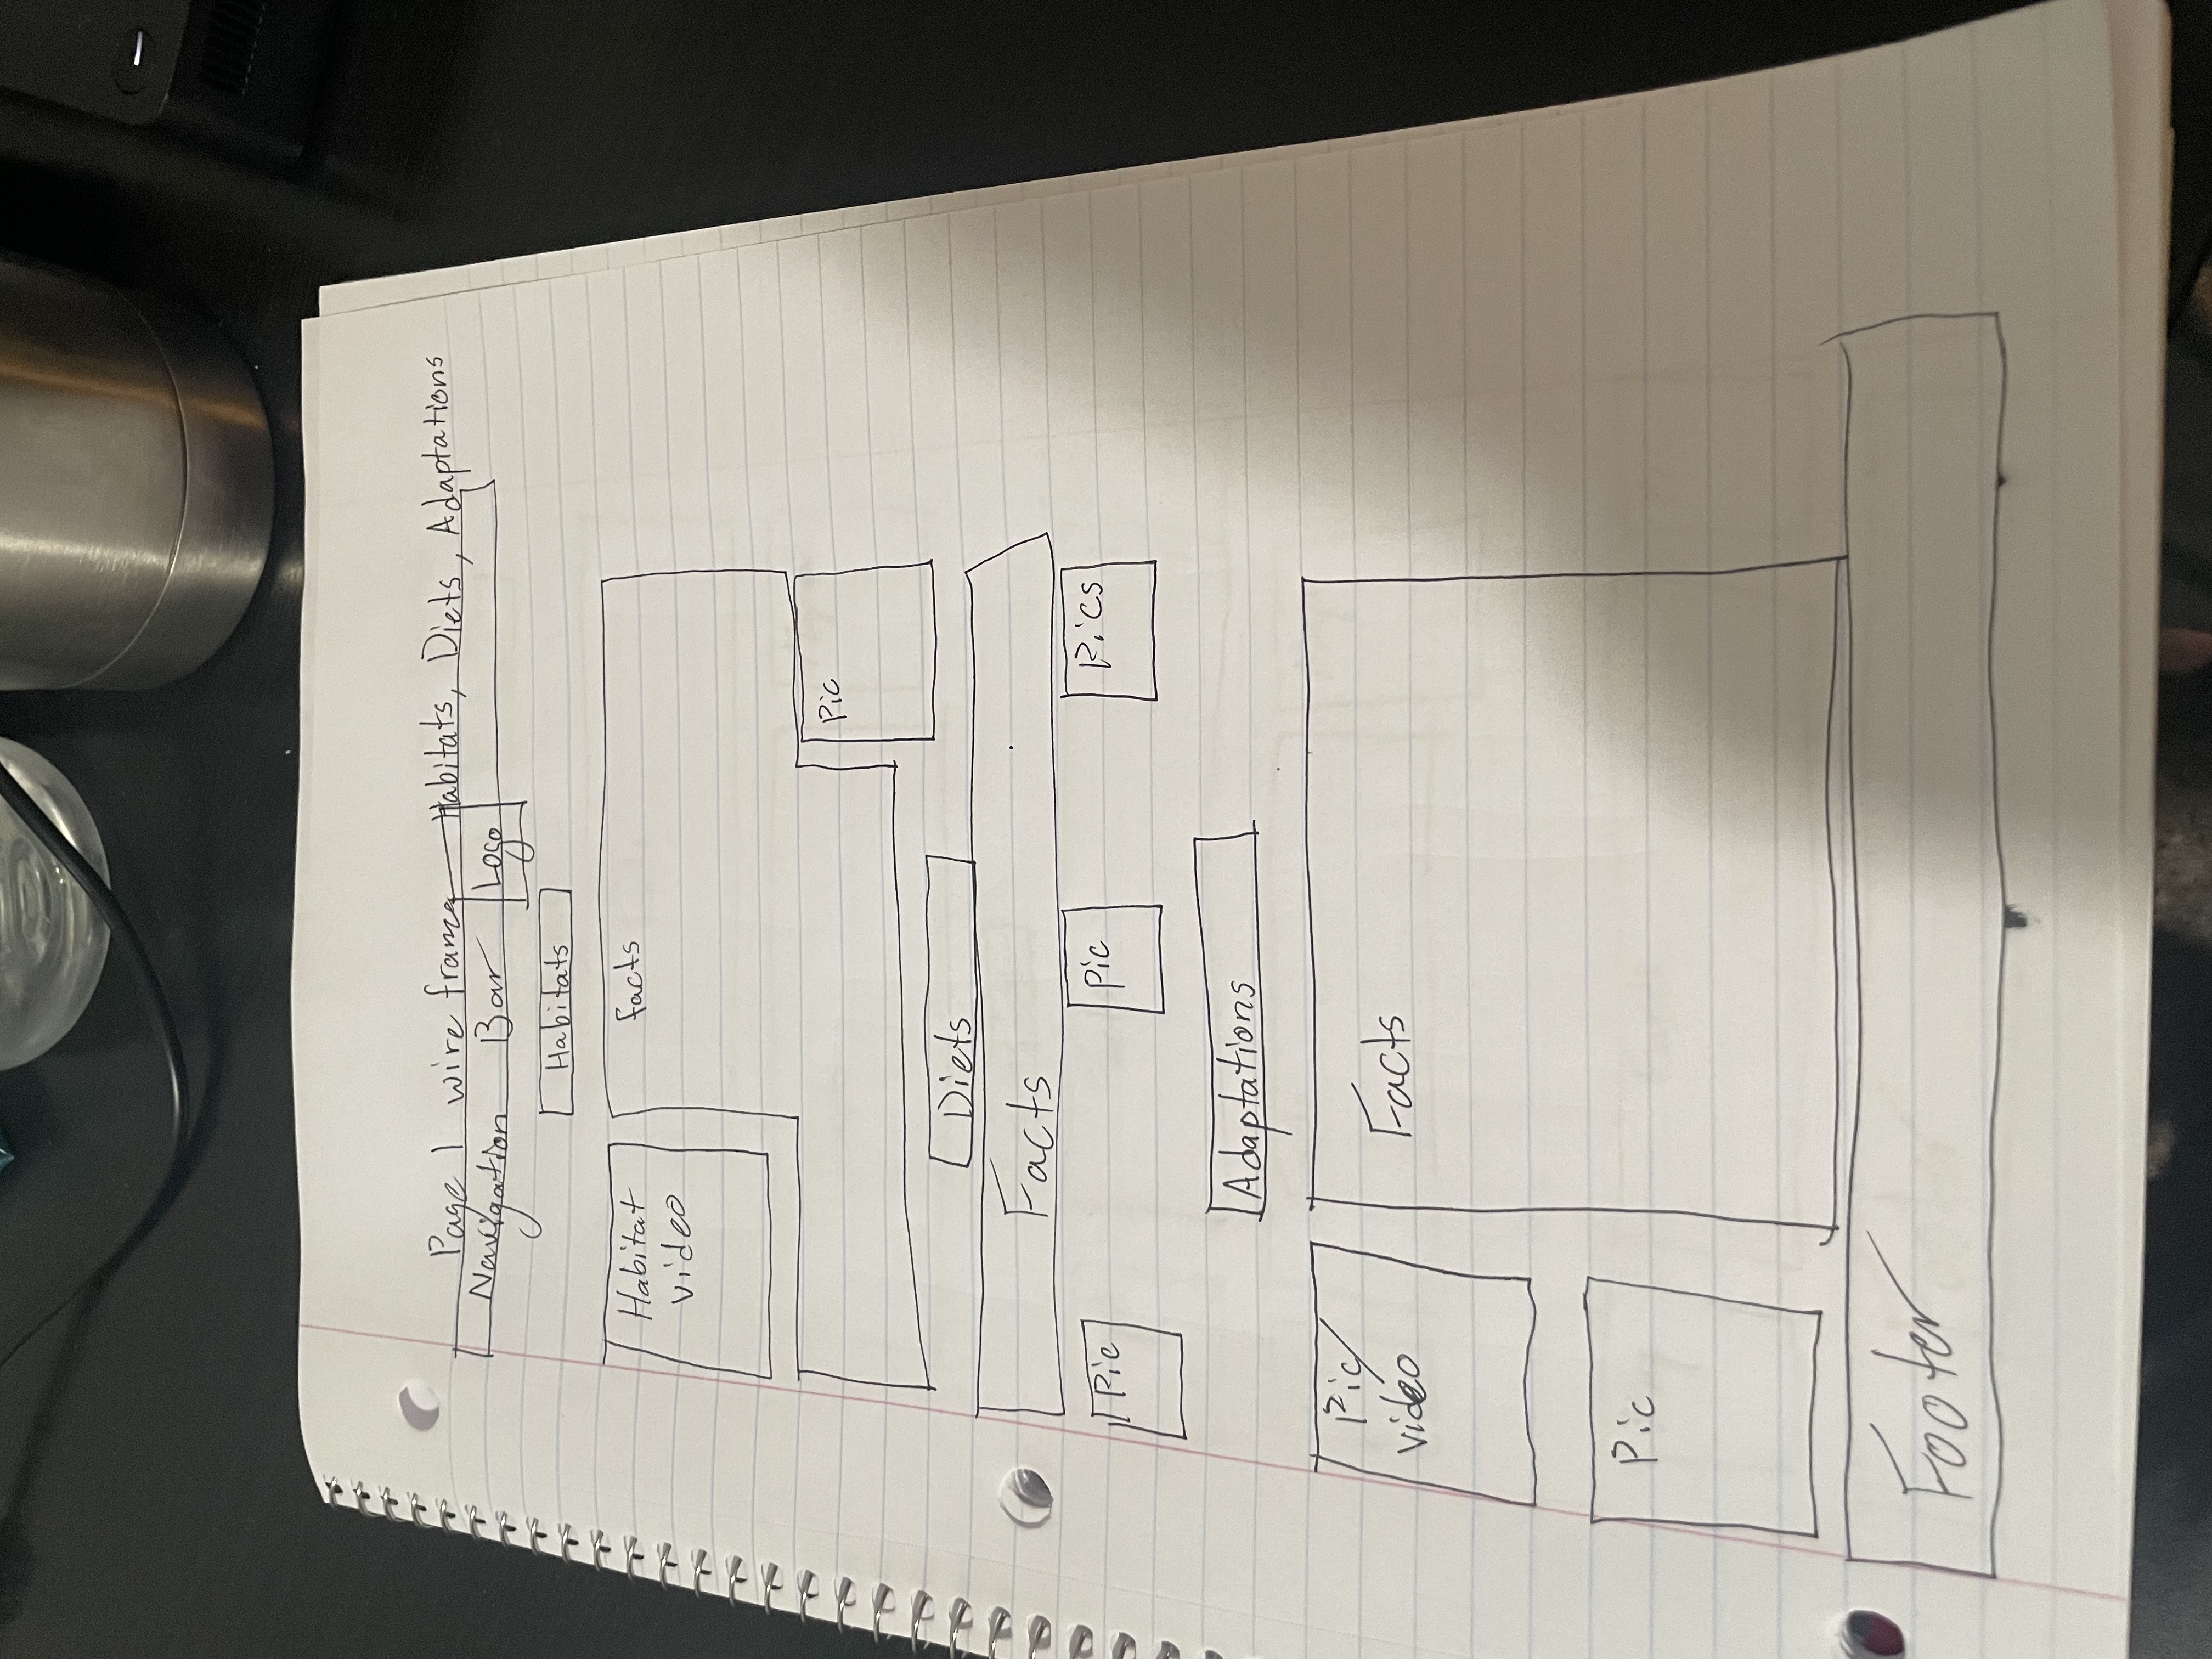 Page 1 wire frame — Habitats, Diets, Adaptations
Navigation Bar Logo
Habitats
Habitat facts
video
Pic
Diets
Facts
Pic Pic Pics
Adaptations
Pic/
video
Facts
Pic
Footer